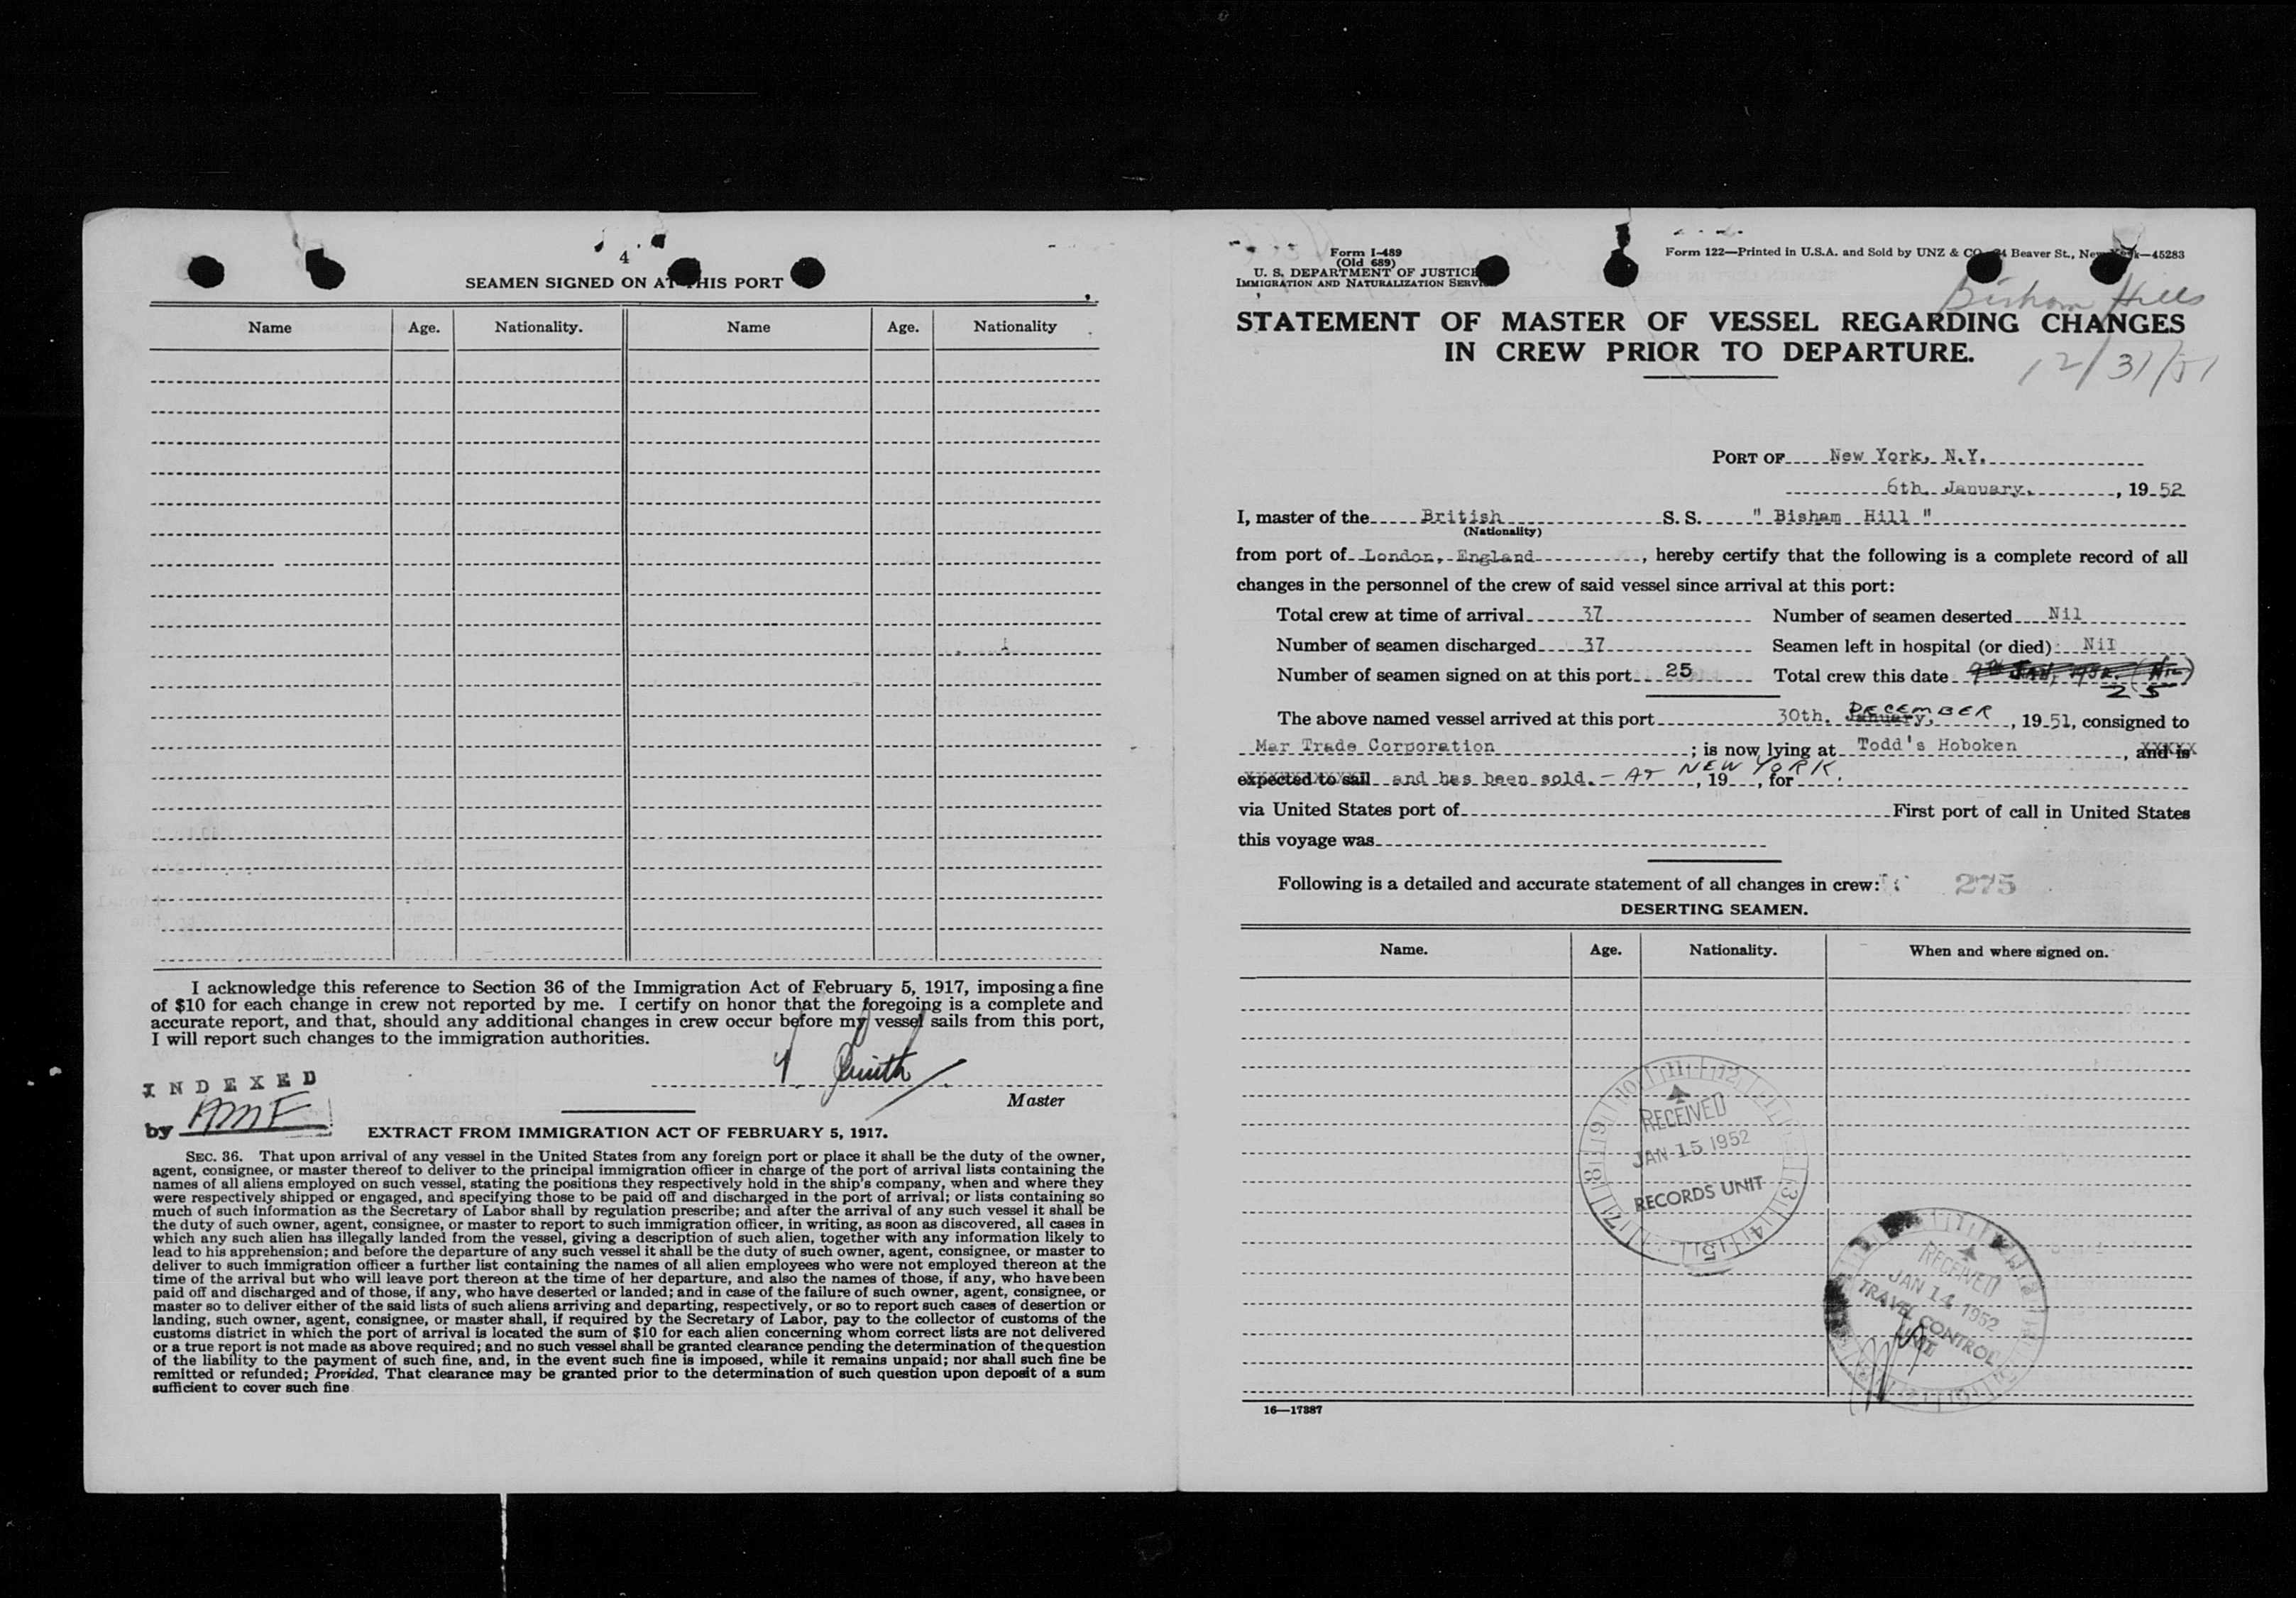 4
SEAMEN SIGNED ON AT THIS PORT
Name Age. Nationality. Name Age. Nationality
I acknowledge this reference to Section 36 of the Immigration Act of February 5, 1917, imposing a fine
of $10 for each change in crew not reported by me. I certify on honor that the foregoing is a complete and
accurate report, and that, should any additional changes in crew occur before my vessel sails from this port,
I will report such changes to the immigration authorities.
Smith
Master
INDEXED
by AMF
EXTRACT FROM IMMIGRATION ACT OF FEBRUARY 5, 1917.
SEC. 36. That upon arrival of any vessel in the United States from any foreign port or place it shall be the duty of the owner,
agent, consignee, or master thereof to deliver to the principal immigration officer in charge of the port of arrival lists containing the
names of all aliens employed on such vessel, stating the positions they respectively hold in the ship's company, when and where they
were respectively shipped or engaged, and specifying those to be paid off and discharged in the port of arrival; or lists containing so
much of such information as the Secretary of Labor shall by regulation prescribe; and after the arrival of any such vessel it shall be
the duty of such owner, agent, consignee, or master to report to such immigration officer, in writing, as soon as discovered, all cases in
which any such alien has illegally landed from the vessel, giving a description of such alien, together with any information likely to
lead to his apprehension; and before the departure of any such vessel it shall be the duty of such owner, agent, consignee, or master to
deliver to such immigration officer a further list containing the names of all alien employees who were not employed thereon at the
time of the arrival but who will leave port thereon at the time of her departure, and also the names of those, if any, who have been
paid off and discharged and of those, if any, who have deserted or landed; and in case of the failure of such owner, agent, consignee, or
master so to deliver either of the said lists of such aliens arriving and departing, respectively, or so to report such cases of desertion or
landing, such owner, agent, consignee, or master shall, if required by the Secretary of Labor, pay to the collector of customs of the
customs district in which the port of arrival is located the sum of $10 for each alien concerning whom correct lists are not delivered
or a true report is not made as above required; and no such vessel shall be granted clearance pending the determination of the question
of the liability to the payment of such fine, and, in the event such fine is imposed, while it remains unpaid; nor shall such fine be
remitted or refunded; Provided, That clearance may be granted prior to the determination of such question upon deposit of a sum
sufficient to cover such fine
Form I-489
(Old 689)
U. S. DEPARTMENT OF JUSTICE
IMMIGRATION AND NATURALIZATION SERVICE
Form 122—Printed in U.S.A. and Sold by UNZ & CO., 24 Beaver St., New York—45283
Bisham Hills
STATEMENT OF MASTER OF VESSEL REGARDING CHANGES
IN CREW PRIOR TO DEPARTURE.
12/31/51
PORT OF New York, N.Y.
6th. January. , 19 52
I, master of the British S. S. " Bisham Hill "
(Nationality)
from port of London, England , hereby certify that the following is a complete record of all
changes in the personnel of the crew of said vessel since arrival at this port:
Total crew at time of arrival 37 Number of seamen deserted Nil
Number of seamen discharged 37 Seamen left in hospital (or died) Nil
Number of seamen signed on at this port 25 Total crew this date 9th JAN, 1952. (NIL)
25
The above named vessel arrived at this port 30th. January, DECEMBER , 19 51, consigned to
Mar Trade Corporation ; is now lying at Todd's Hoboken , and is
expected to sail and has been sold. - At NEW YORK. , 19 , for
via United States port of First port of call in United States
this voyage was
Following is a detailed and accurate statement of all changes in crew: 275
DESERTING SEAMEN.
Name. Age. Nationality. When and where signed on.
RECEIVED
JAN 15 1952
RECORDS UNIT
RECEIVED
JAN 14 1952
TRAVEL CONTROL
UNIT
16—17887